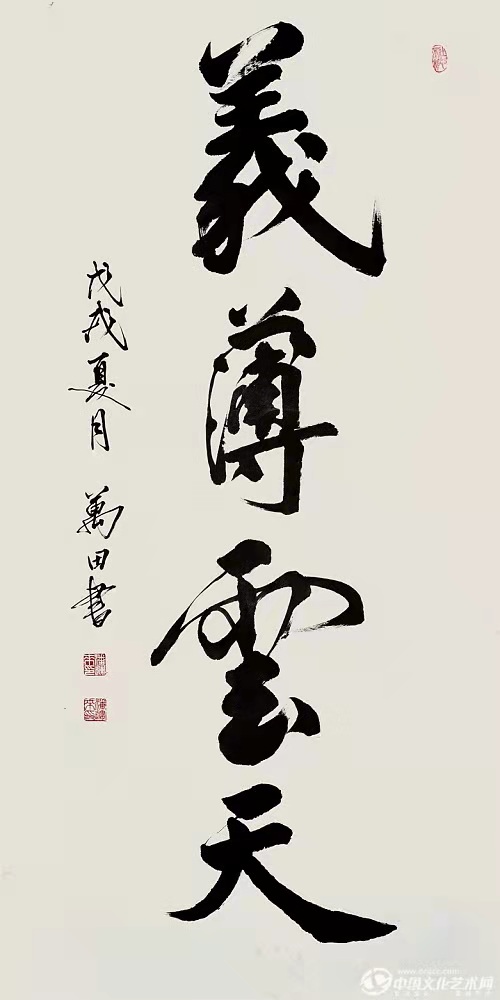 義薄雲天
戊戌夏月 萬田書
中国文化艺术网